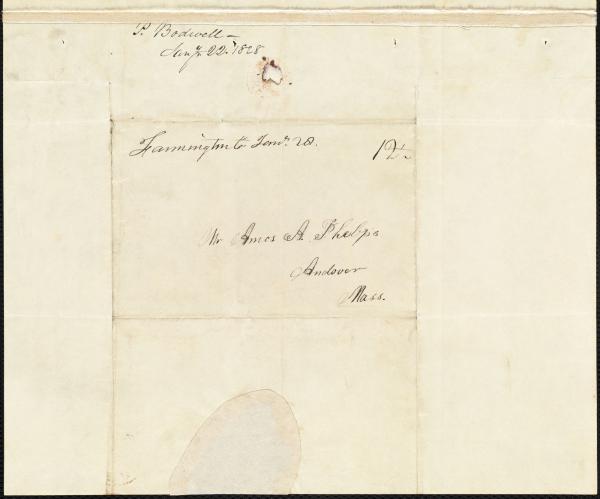 P. Bodwell —
Jany. 22. 1828
Farmington Ct Jany. 28. 12½
Mr Amos A. Phelps
Andover
Mass.